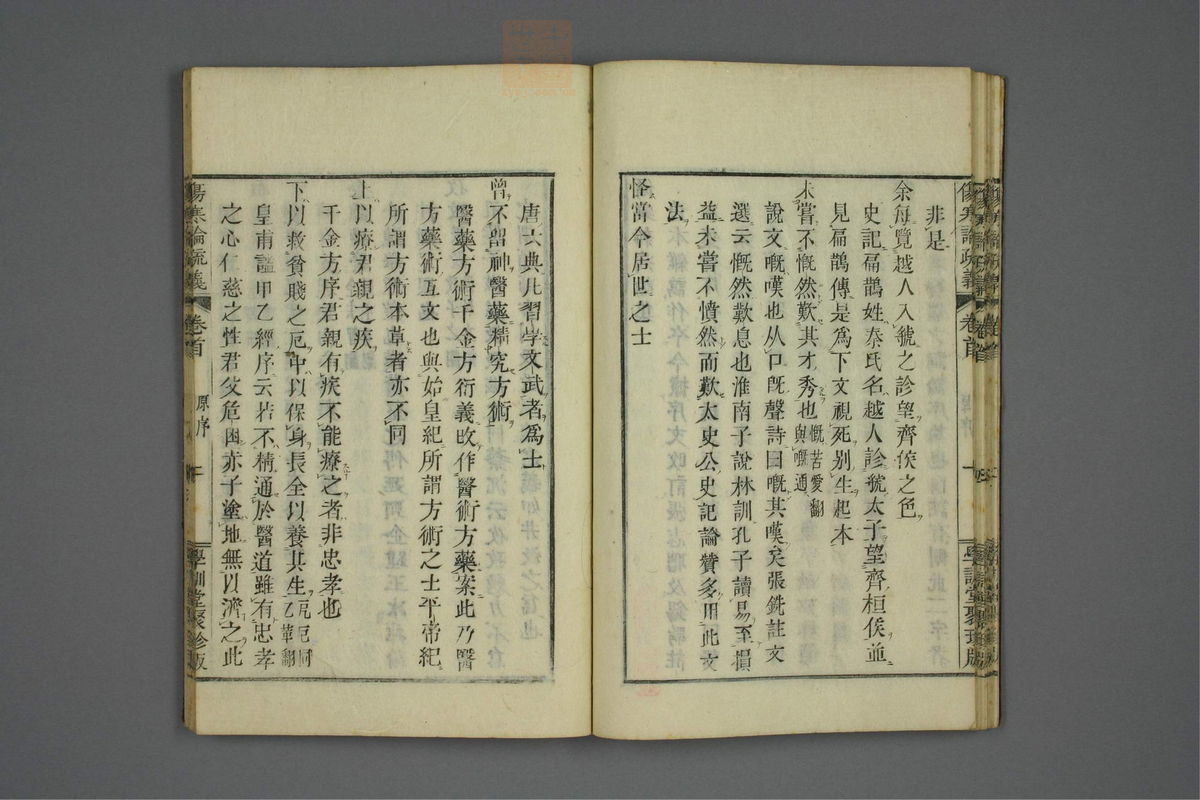 傷寒論疏義 卷首 學訓堂聚珍版
非是
余每覽越人入虢之診望齊侯之色
史記扁鵲姓秦氏名越人診虢太子望齊桓侯並
見扁鵲傳是爲下文視死别生起本
未嘗不慨然歎其才秀也 慨苦愛翻
與嘅通
說文嘅嘆也从口既聲詩曰嘅其嘆矣張銑註文
選云慨然歎息也淮南子說林訓孔子讀易至損
益未嘗不憤然而歎太史公史記論贊多用此文
法
怪當今居世之士
唐六典凡習學文武者爲士
曾不留神醫藥精究方術
醫藥方術千金方衍義攺作醫術方藥案此乃醫
方藥術互文也與始皇紀所謂方術之士平帝紀
所謂方術本草者亦不同
上以療君親之疾
千金方序君親有疾不能療之者非忠孝也
下以救貧賤之厄中以保身長全以養其生 戹厄同
乙革翻
皇甫謐甲乙經序云若不精通於醫道雖有忠孝
之心仁慈之性君父危困赤子塗地無以濟之此
傷寒論疏義 卷首 原序 二 學訓堂聚珍版